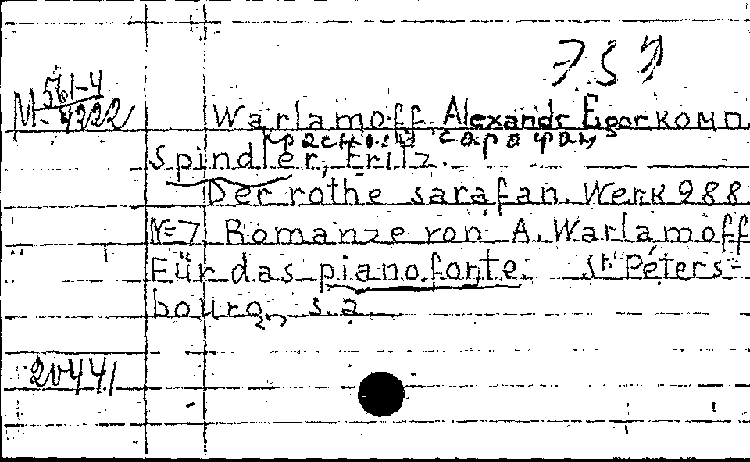 М 561-4
4222
Warlamoff, Alexandr Egor комп.
Красный сарафан,
Spindler, Fritz.
Der rothe sarafan. Werk 988
N=7 Romanze von A. Warlamoff
Für das pianoforte. St. Péters-
bourg, s.a.
20441